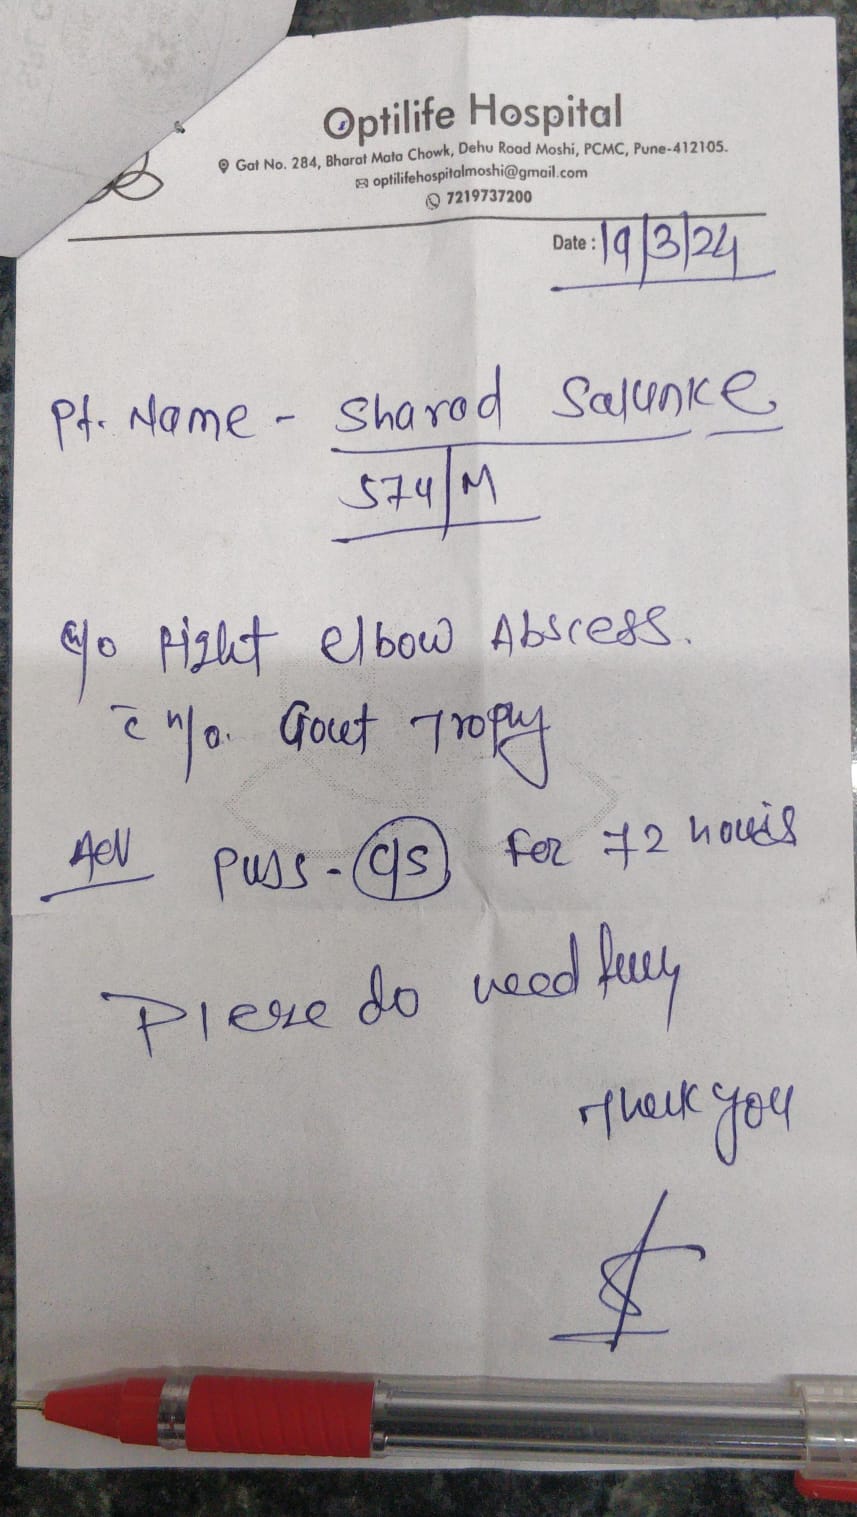 Optilife Hospital
Gat No. 284, Bharat Mata Chowk, Dehu Road Moshi, PCMC, Pune-412105.
optilifehospitalmoshi@gmail.com
7219737200
Date : 19/3/24
Pt. Name - Sharad Salunke
57y/M
c/o Right elbow Abscess.
c̄ h/o. Gout Trophy
Adv Puss - c/s for 72 hours
Please do needfully
Thank you